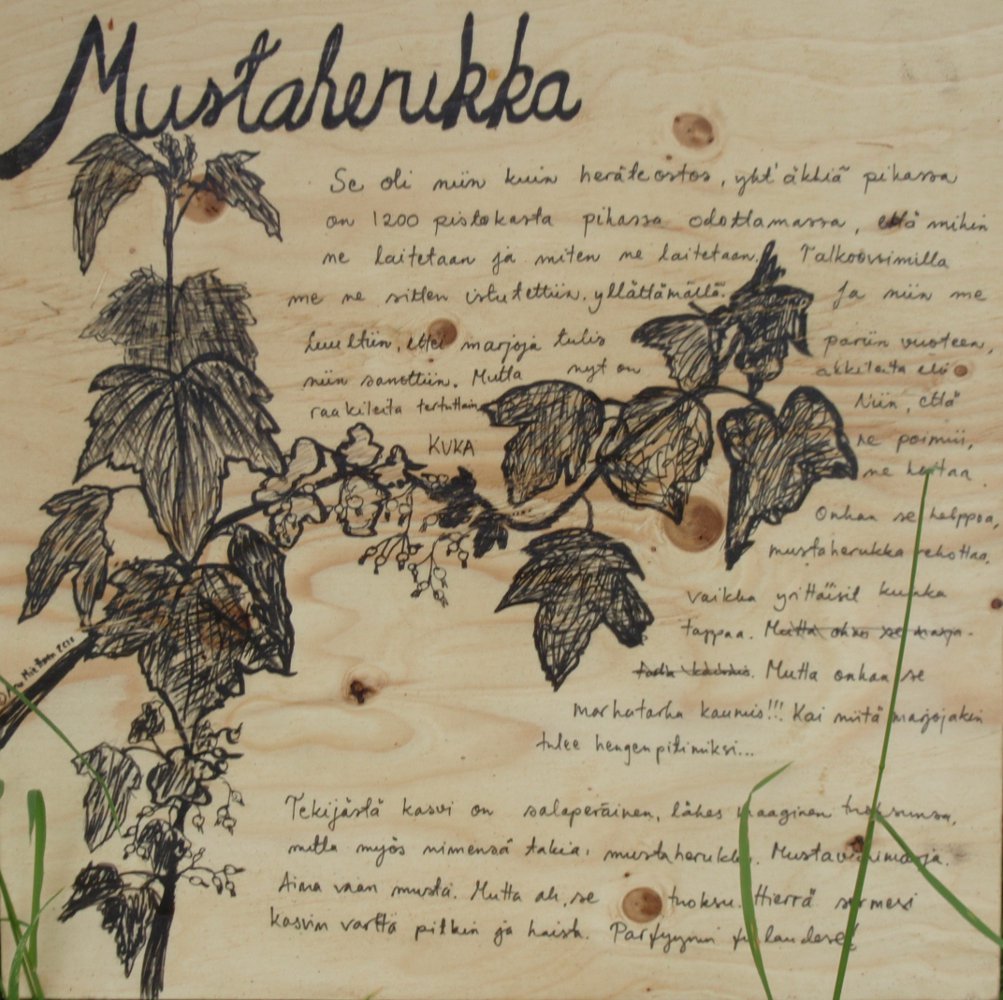 Mustaherukka
Se oli niin kuin heräteostos, yht'äkkiä pihassa
on 1200 pistokasta pihassa odottamassa, että mihin
ne laitetaan ja miten ne laitetaan. Talkoovoimilla
me ne sitten istutettiin. yllättämällä. Ja niin me
luultiin, ettei marjoja tulis pariin vuoteen,
niin sanottiin. Mutta nyt on akkileita eli
raakileita terttuttain. Niin, että
KUKA ne poimii,
ne hoitaa.
Onhan se helppoa,
mustaherukka rehottaa,
vaikka yrittäisit kuinka
tappaa. Mutta onko se marja-
tarha kaunis. Mutta onhan se
marhatarha kaunis!!! Kai niitä marjojakin
tulee hengenpitimiksi...
Tekijästä kasvi on salaperäinen, lähes maaginen tuoksunsa,
mutta myös nimensä takia: mustaherukka. Mustaviinimarja.
Aina vaan musta. Mutta ah, se tuoksu. Hierrä sormesi
kasvin vartta pitkin ja haista. Parfyymi